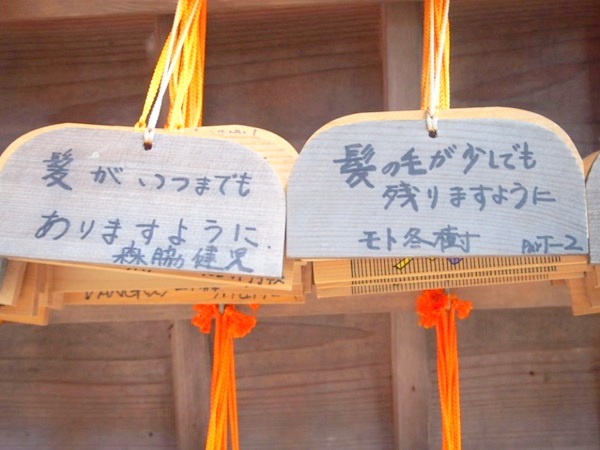 髪がいつまでも
ありますように.
森脇健児
髪の毛が少しでも
残りますように
モト冬樹
PART-2